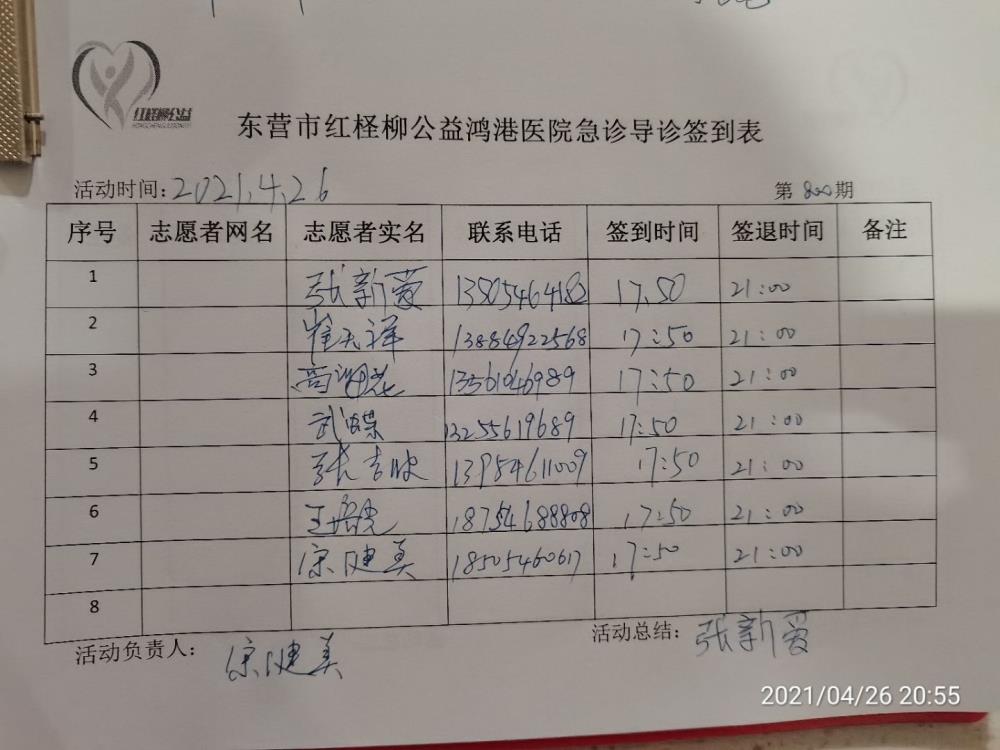 红柽柳公益
东营市红柽柳公益鸿港医院急诊导诊签到表
活动时间:2021.4.26 第800期
序号 志愿者网名 志愿者实名 联系电话 签到时间 签退时间 备注
1 张新爱 13505464182 17.50 21:00
2 崔天祥 13884922568 17:50 21:00
3 高 13561046989 17:50 21:00
4 武蝶 13255619689 17:50 21:00
5 张吉 13954611009 17:50 21:00
6 王 18754688808 17:50 21:00
7 宋健美 18505460617 17:50 21:00
8
活动负责人: 宋健美 活动总结: 张新爱
2021/04/26 20:55